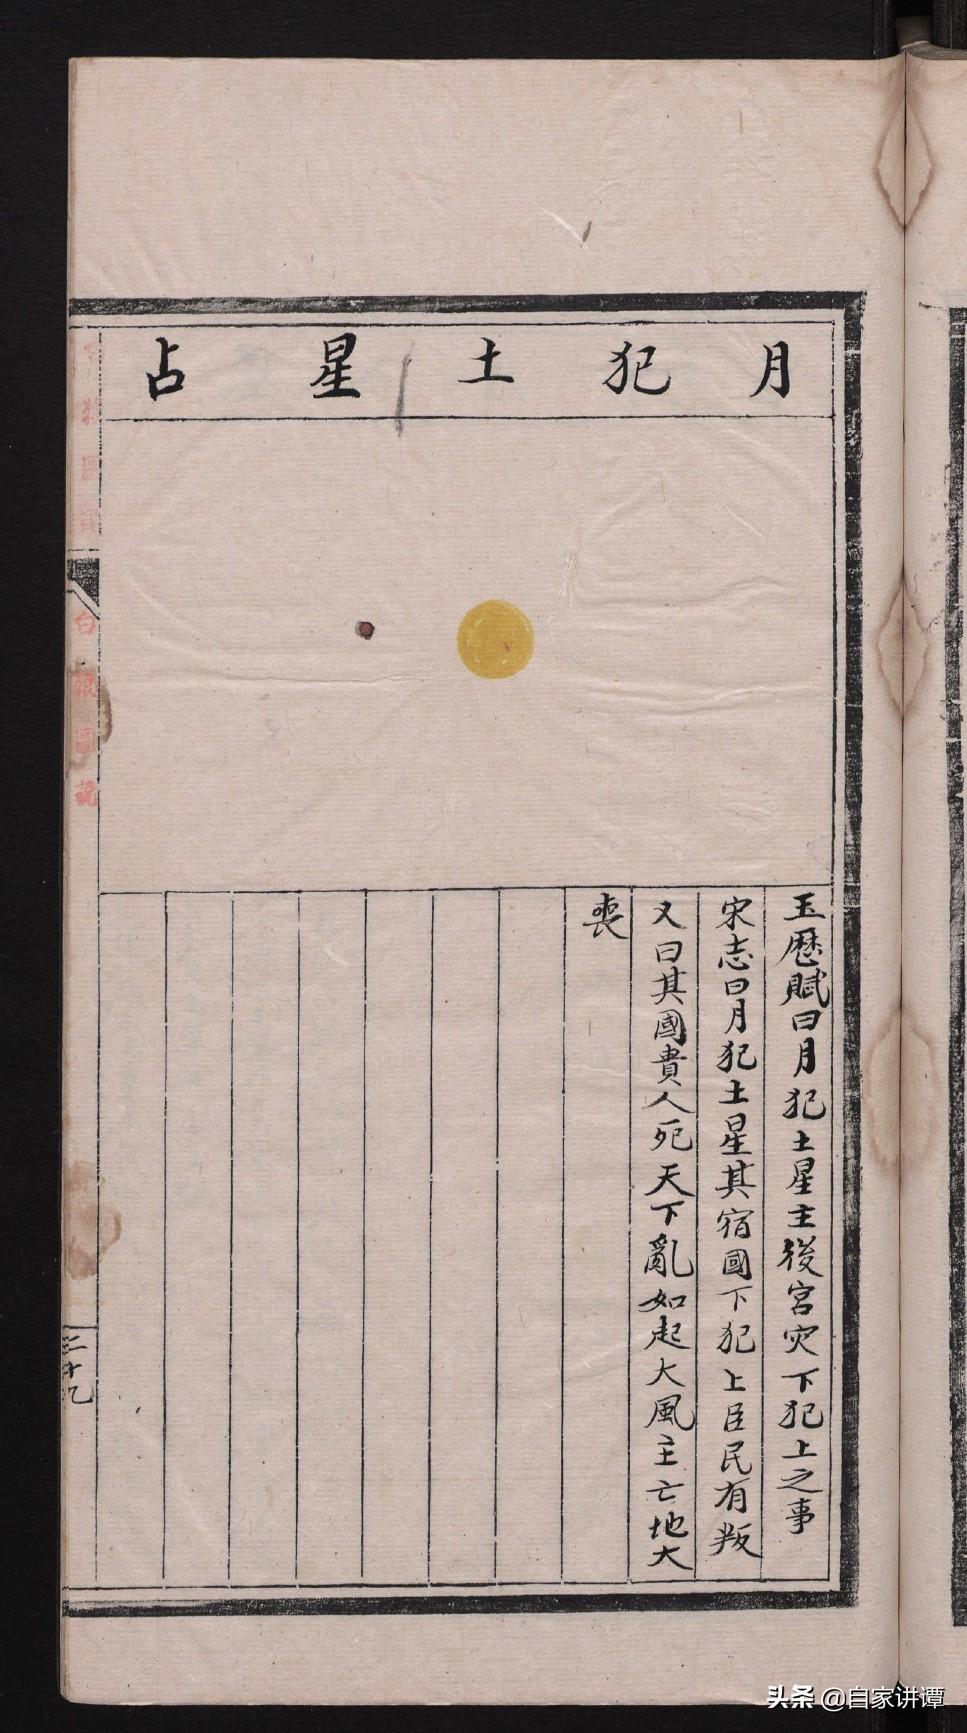 月犯土星占
玉歷賦曰月犯土星主後宮灾下犯上之事
宋志曰月犯土星其宿國下犯上臣民有叛
又曰其國貴人死天下亂如起大風主亡地大
喪
白猿圖説
三十九
头条 @自家讲谭